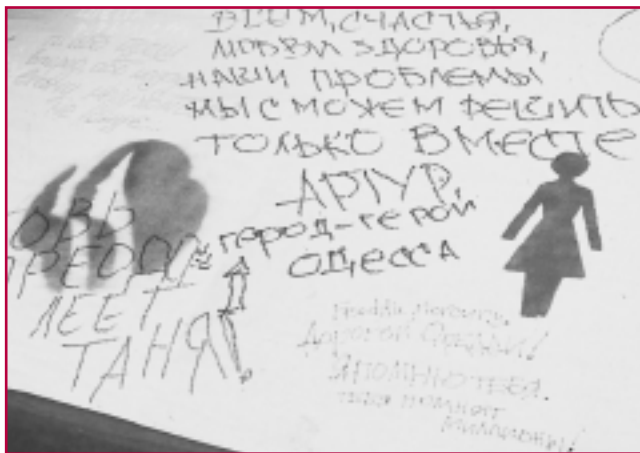 ВСЕМ, СЧАСТЬЯ,
ЛЮБВИ ЗДОРОВЬЯ,
НАШИ ПРОБЛЕМЫ
МЫ СМОЖЕМ РЕШИТЬ
ТОЛЬКО ВМЕСТЕ
АРТУР,
ГОРОД-ГЕРОЙ
ОДЕССА
ОВЬ
ПРЕОДО
ЛЕЕТ
ТАНЯ
Фредди Меркьюри.
Дорогой Фредди!
Я ПОМНЮ ТЕБЯ.
ТЕБЯ ПОМНЯТ
МИЛЛИОНЫ!